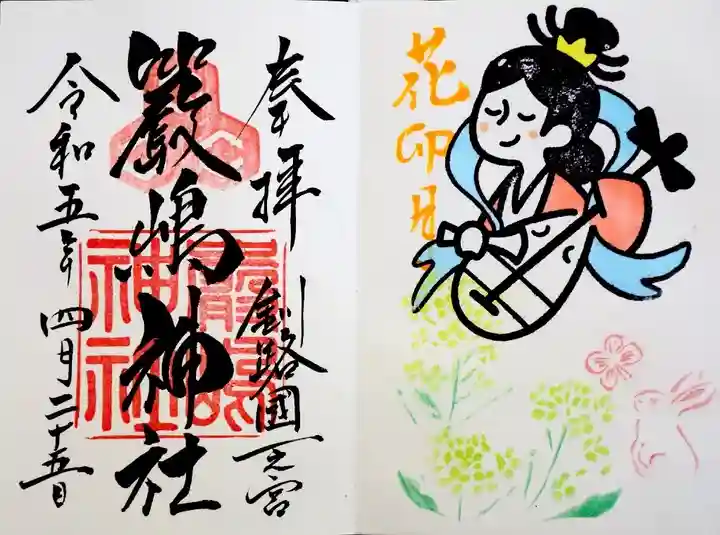 花卯月
奉拝
釧路國一之宮
厳嶋神社
嚴嶋神社
令和五年四月二十五日